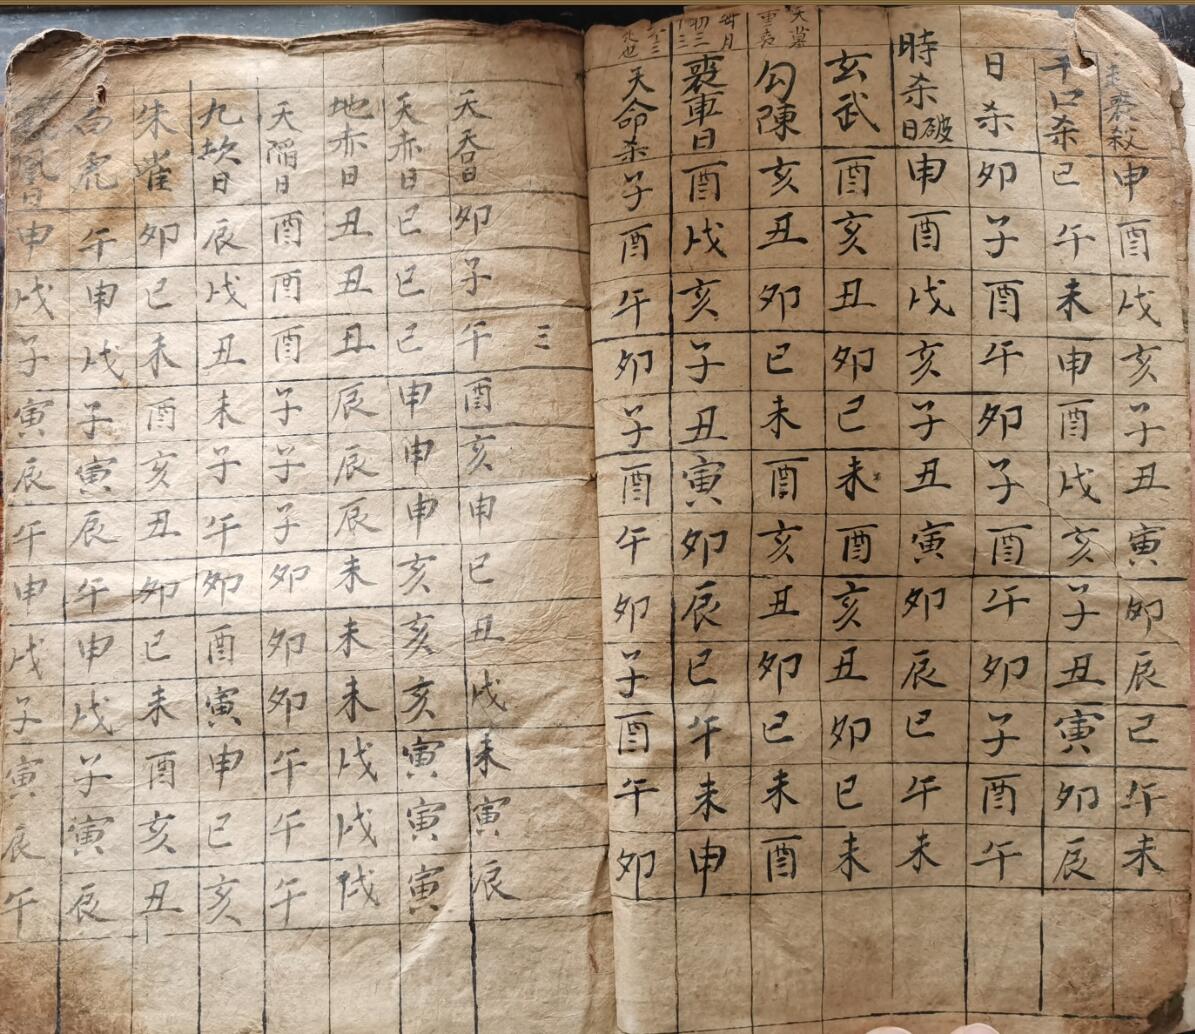 殺申酉戌亥子丑寅卯辰巳午未
口杀巳午未申酉戌亥子丑寅卯辰
日杀卯子酉午卯子酉午卯子酉午
時杀破日申酉戌亥子丑寅卯辰巳午未
玄武酉亥丑卯巳未酉亥丑卯巳未
天墓
勾陳亥丑卯巳未酉亥丑卯巳未酉
每月初三十三
喪車日酉戌亥子丑寅卯辰巳午未申
天命杀子酉午卯子酉午卯子酉午卯
三
天吞日卯子午酉亥申巳丑戌未寅辰
天赤日巳巳巳申申申亥亥亥寅寅寅
地赤日丑丑丑辰辰辰未未未戌戌戌
天陷日酉酉酉子子子卯卯卯午午午
九坎日辰戌丑未子午卯酉寅申巳亥
朱雀卯巳未酉亥丑卯巳未酉亥丑
白虎午申戌子寅辰午申戌子寅辰
日申戌子寅辰午申戌子寅辰午